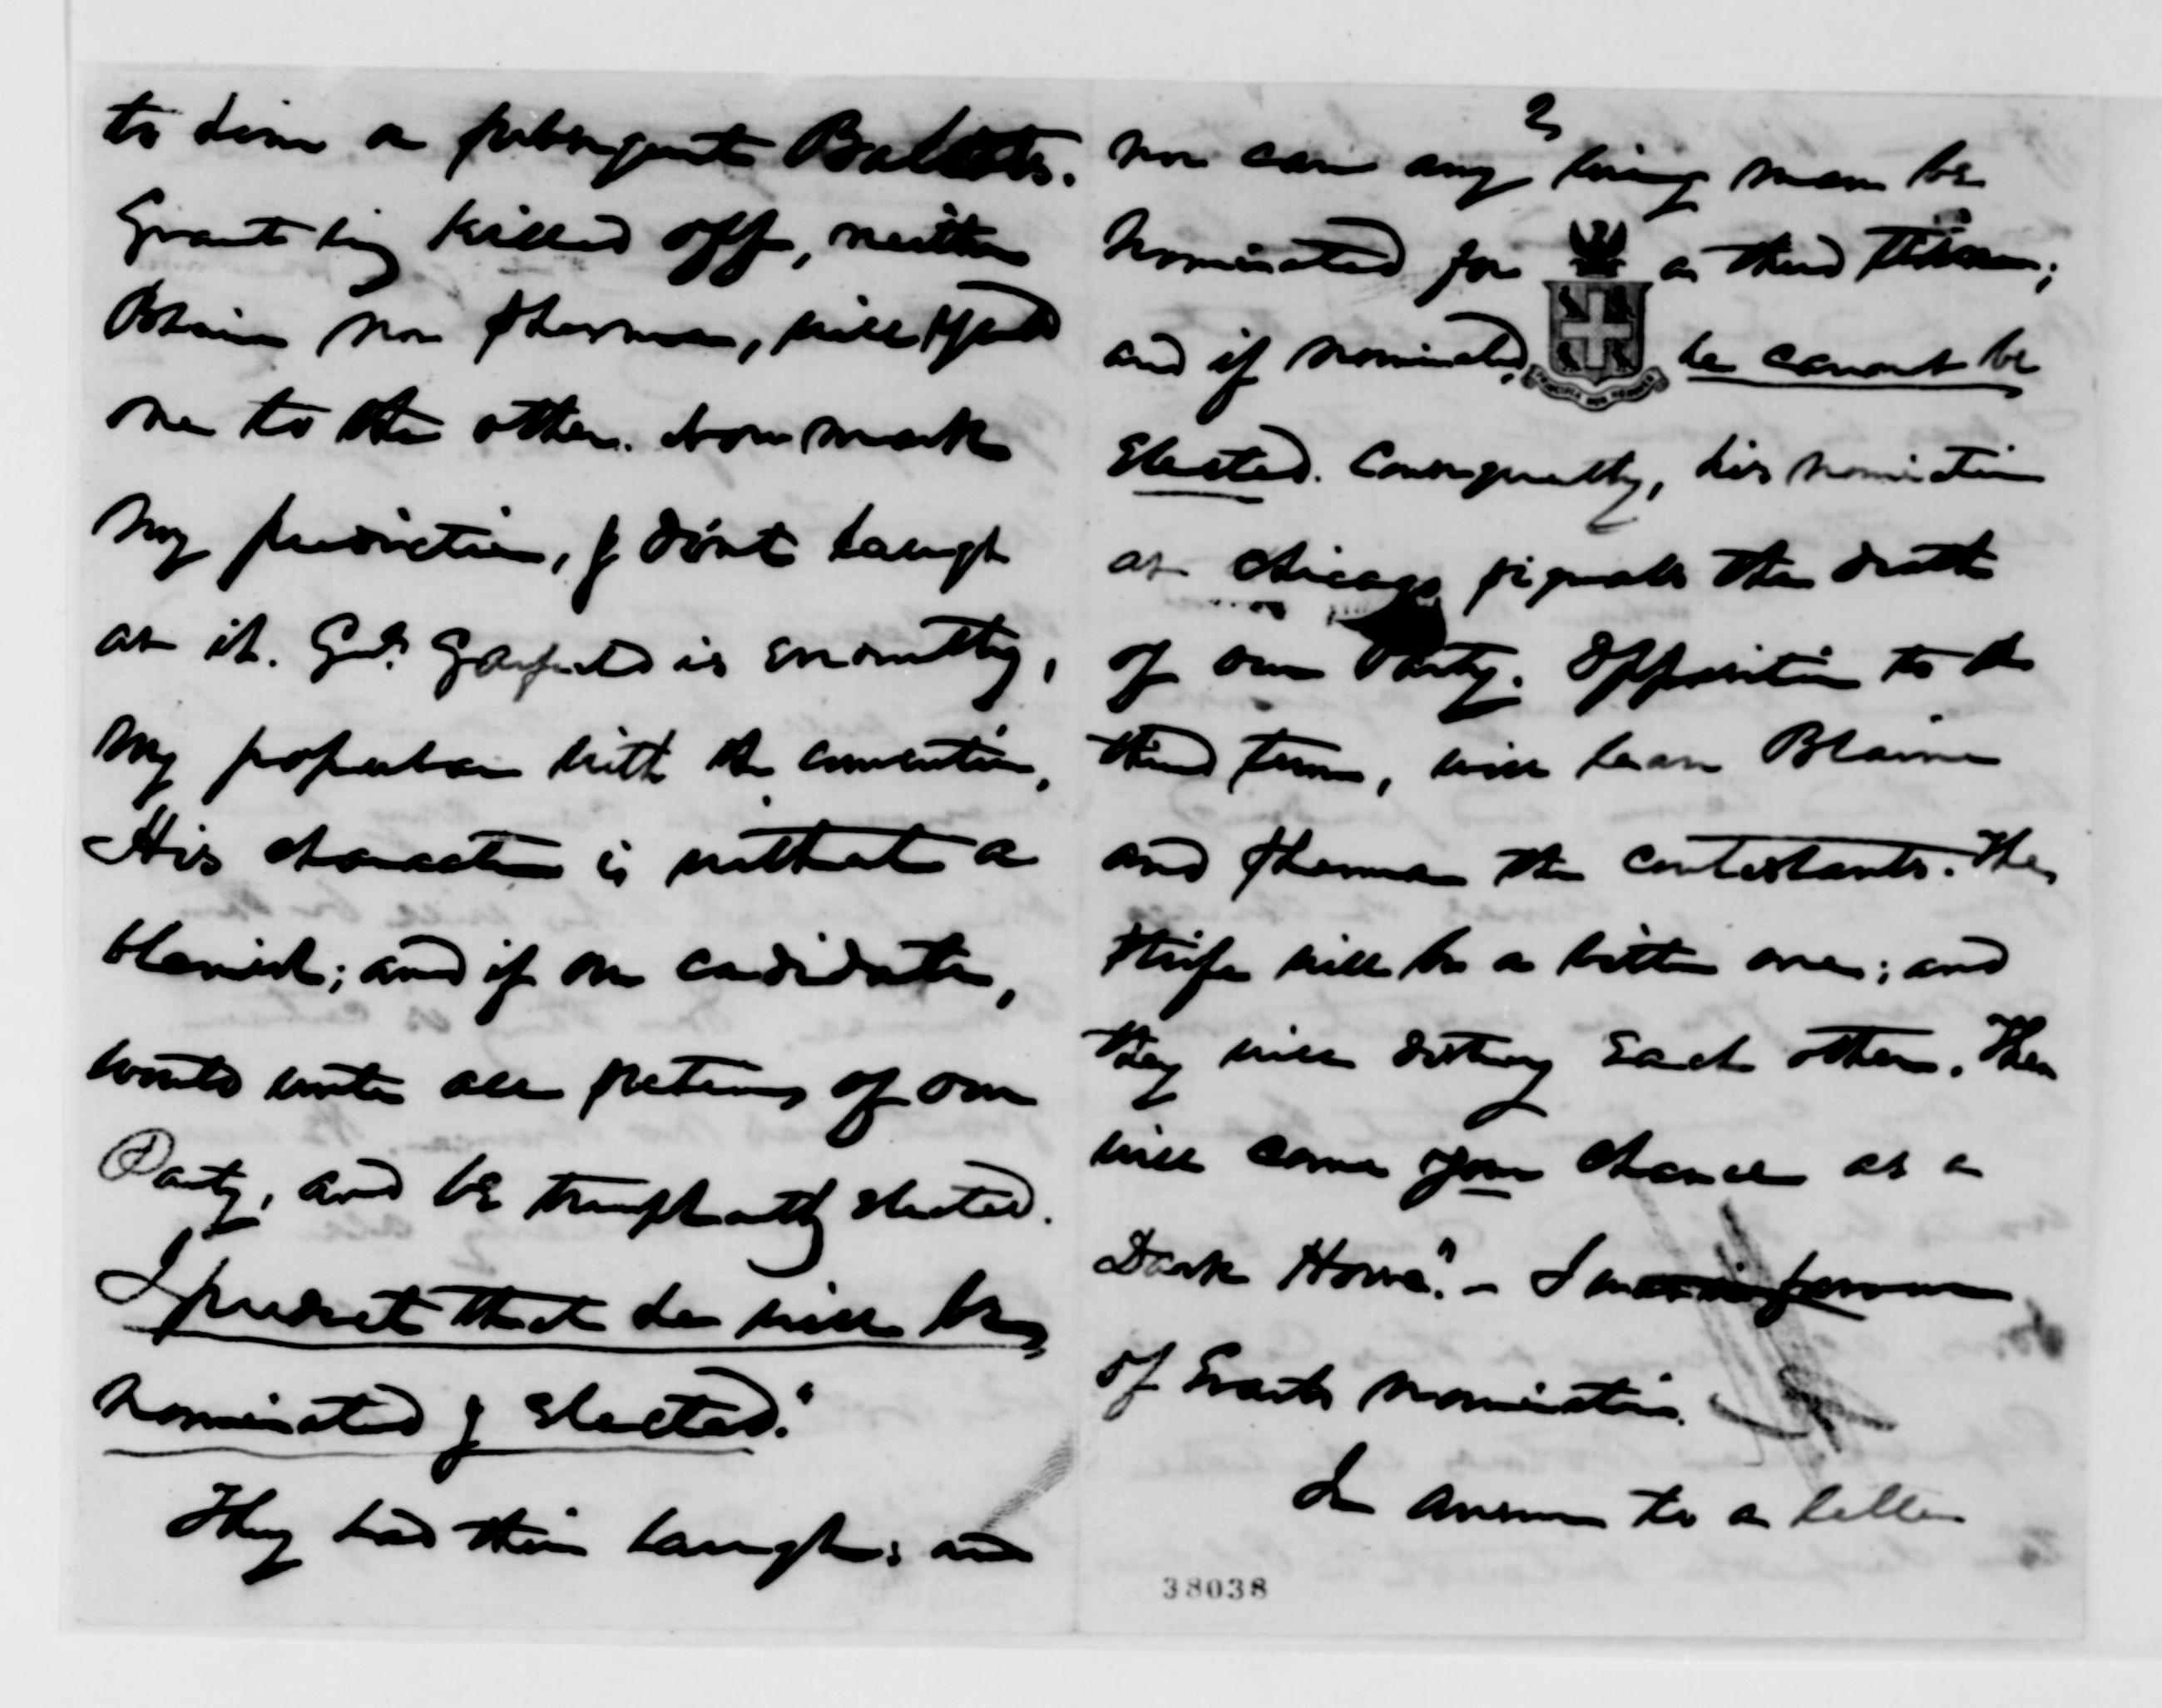 to him on subsequent Ballots.
Grant being killed off, neither
Blaine nor Sherman, will yield
one to the other. Now mark
my prediction, & dont laugh
at it. Genl. Garfield is eminently,
my popular with the convention,
His character is without a
blemish; and if our candidate,
would unite all sections of our
Party, and be triumphantly elected.
I predict that he will be
nominated & elected."
They had their laugh; and
2
nor can any living man be
nominated for a third Time;
and if nominated, he cannot be
Elected. Consequently, his nomination
at Chicago signals the death
of our Party. Opposition to the
third term, will leave Blaine
and Sherman the contestants. The
strife will be a bitter one; and
they will destroy Each other. Then
will come your chance as a
Dark Horse". - I was in favour
of Grants nomination.
In answer to a letter
38038